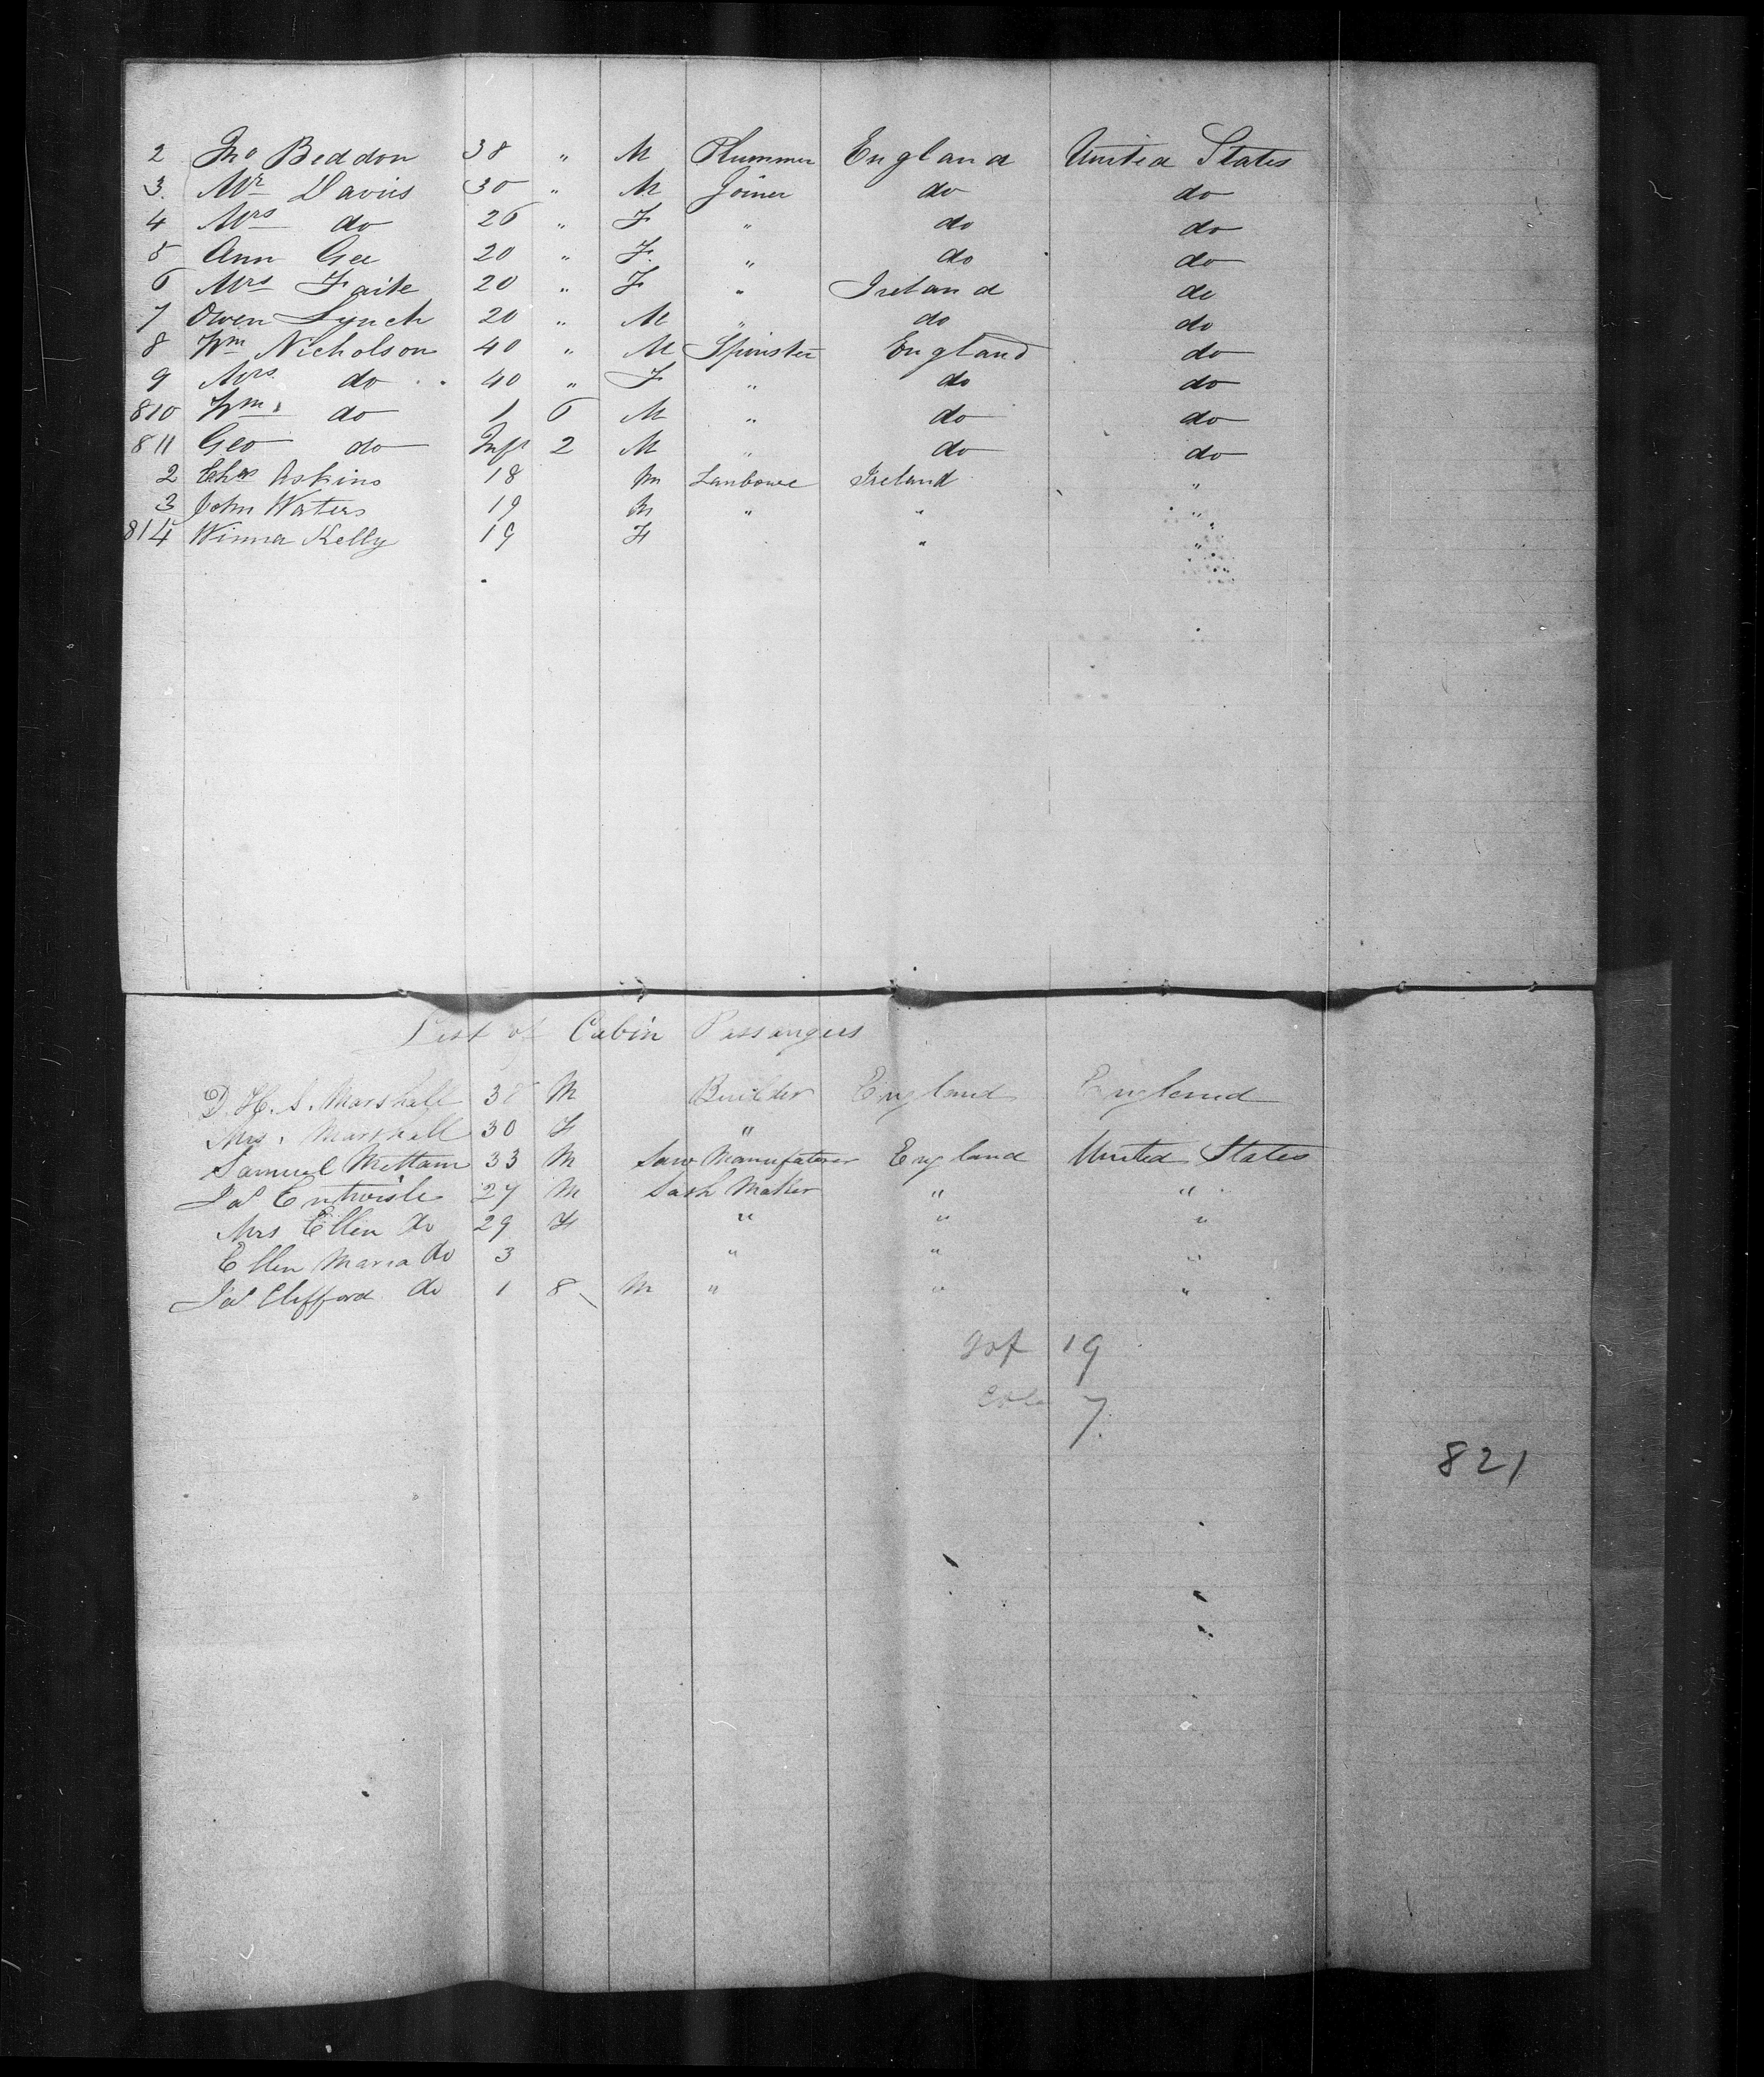 2 Jno Beddon 38 " M Plummer England United States
3. Mr Davies 30 " M Joiner do do
4 Mrs do 26 " F " do do
5 Ann Gee 20 " F. " do do
6 Mrs Faite 20 " F " Ireland do
7 Owen Lynch 20 " M " do do
8 Wm Nicholson 40 " M Spinster England do
9 Mrs. do 40 " F " do do
810 Wm. do 1 6 M " do do
811 Geo do Inft 2 M " do do
2 Chas Askins 18 M Ireland "
3 John Waters 19 M " " "
814 Winna Kelly 19 F " "
List of Cabin Passangers
D. H. S. Marshall 38 M Builder England England
Mrs. Marshall 30 F "
Samuel Mettam 33 M Saw Manufaterer England United States
Jas Entwisle 27 M Sash Maker " "
Mrs Ellen do 29 F " " "
Ellen Maria do 3 " " "
Jas Clifford do 1 8 M " " "
19
7.
821